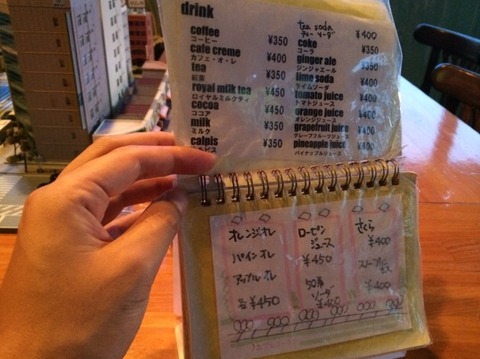 drink
coffee ¥350
コーヒー
cafe creme ¥400
カフェ・オ・レ
tea ¥350
紅茶
royal milk tea ¥450
ロイヤルミルクティ
cocoa ¥450
ココア
milk ¥350
ミルク
calpis ¥350
tea soda ¥400
ティーソーダ
coke ¥350
コーラ
ginger ale ¥350
ジンジャエール
lime soda ¥400
ライムソーダ
tomato juice ¥400
トマトジュース
orange juice ¥400
オレンジジュース
grapefruit juice ¥400
グレープフルーツジュース
pineapple juice ¥400
パイナップルジュース
オレンジオレ
パインオレ
アップルオレ
各¥450
ローピン
ジュース
¥450
50番
ソーダ
¥450
さくら
¥400
¥400